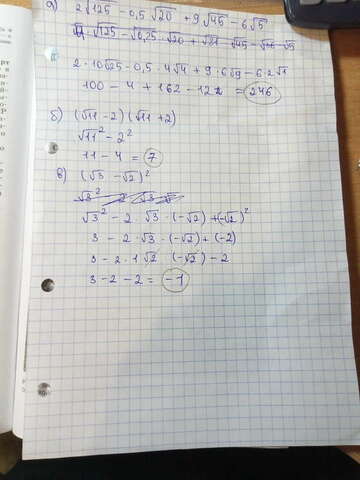 а) 2√125 - 0,5 √20 + 9 √45 - 6√5
√125 - √0,25 · √20 + √81 · √45 -
2 · 10√25 - 0,5 · 4√4 + 9 · 6√9 - 6 · 2√1
100 - 4 + 162 - 12 = 246
б) (√11 - 2) (√11 + 2)
√11² - 2²
11 - 4 = 7
в) (√3 - √2)²
√3² - 2 √3 · (-√2) + (-√2)²
3 - 2 · √3 · (-√2) + (-2)
3 - 2 · 1 √2 (-√2) - 2
3 - 2 - 2 = -1